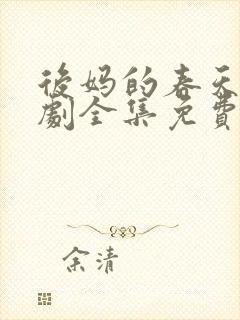 後妈的春天
劇全集免費
余清